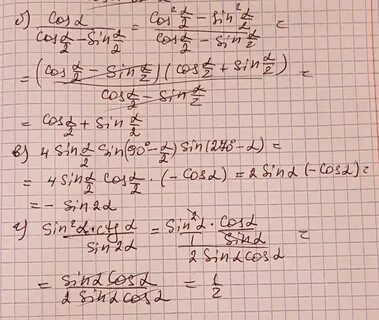 б) cosα / (cos α/2 − sin α/2) = (cos² α/2 − sin² α/2) / (cos α/2 − sin α/2) =
= (cos α/2 − sin α/2)(cos α/2 + sin α/2) / (cos α/2 − sin α/2) =
= cos α/2 + sin α/2
в) 4 sin α/2 sin(90° − α/2) sin(270° − α) =
= 4 sin α/2 cos α/2 · (−cosα) = 2 sinα (−cosα) =
= − sin 2α
г) sin²α · ctgα / sin 2α = (sin²α / 1 · cosα / sinα) / (2 sinα cosα) =
= sinα cosα / (2 sinα cosα) = 1/2